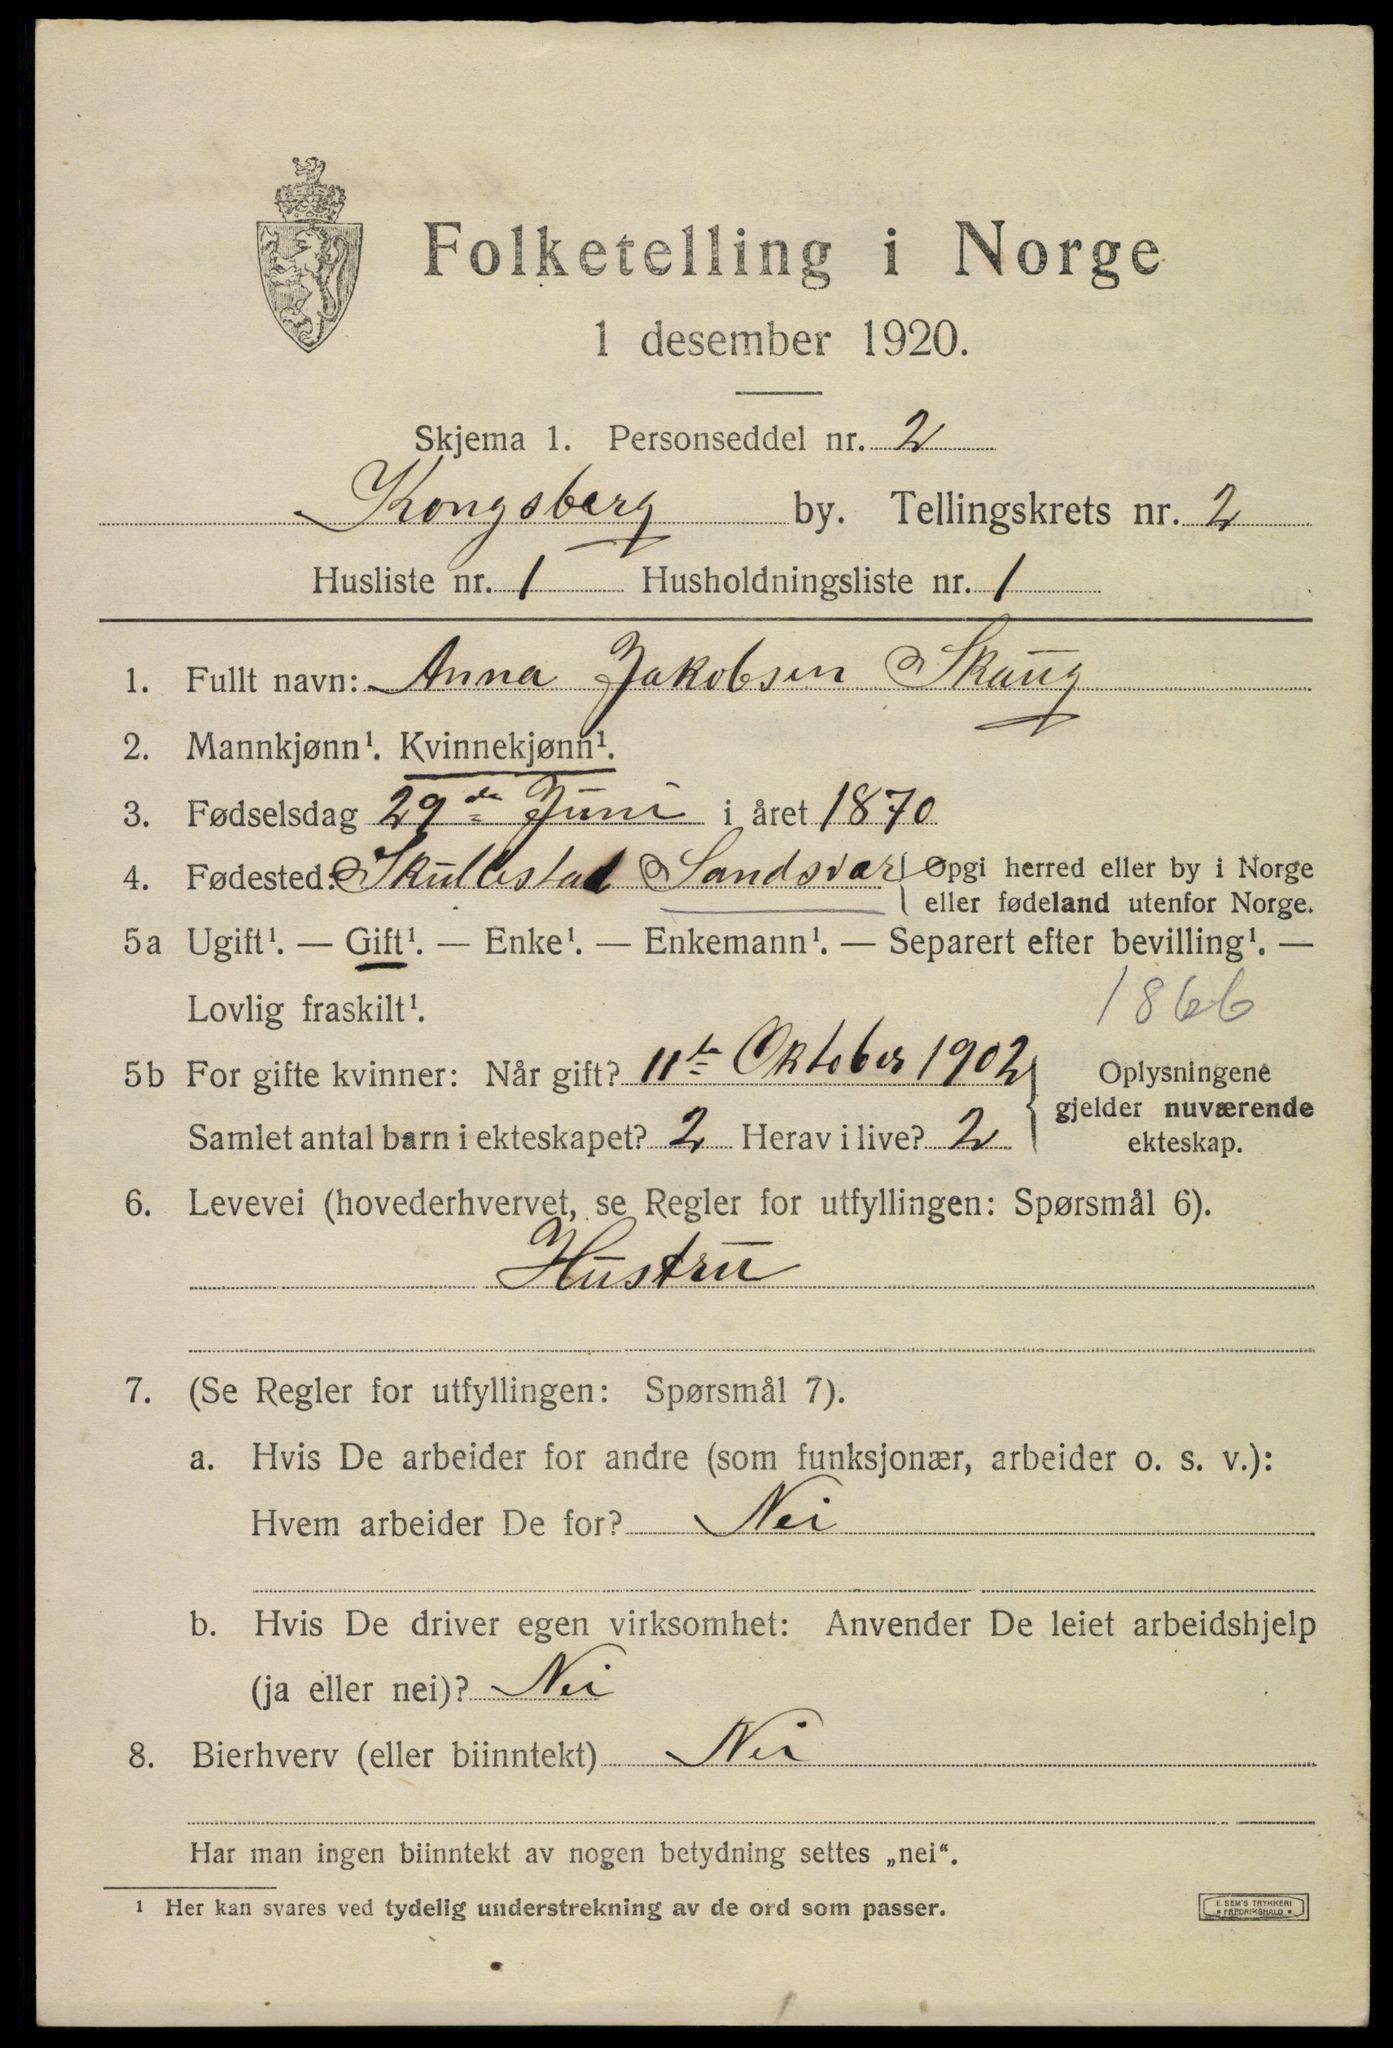 Folketelling i Norge
1 desember 1920.
Skjema 1. Personseddel nr. 2
Kongsberg by. Tellingskrets nr. 2
Husliste nr. 1 Husholdningsliste nr. 1
1. Fullt navn: Anna Jakobsen Skaug
2. Mannkjønn¹. Kvinnekjønn¹.
3. Fødselsdag 29de Juni i året 1870
4. Fødested: Skullestad Sandsvær { Opgi herred eller by i Norge
eller fødeland utenfor Norge.
5a Ugift¹. — Gift¹. — Enke¹. — Enkemann¹. — Separert efter bevilling¹. —
Lovlig fraskilt¹.
1866
5b For gifte kvinner: Når gift? 11te Oktober 1902
Samlet antal barn i ekteskapet? 2 Herav i live? 2
Oplysningene
gjelder nuværende
ekteskap.
6. Levevei (hovederhvervet, se Regler for utfyllingen: Spørsmål 6).
Hustru
7. (Se Regler for utfyllingen: Spørsmål 7).
a. Hvis De arbeider for andre (som funksjonær, arbeider o. s. v.):
Hvem arbeider De for? Nei
b. Hvis De driver egen virksomhet: Anvender De leiet arbeidshjelp
(ja eller nei)? Nei
8. Bierhverv (eller biinntekt) Nei
Har man ingen biinntekt av nogen betydning settes „nei“.
¹ Her kan svares ved tydelig understrekning av de ord som passer.
E. SEM'S TRYKKERI
* FREDRIKSHALD *